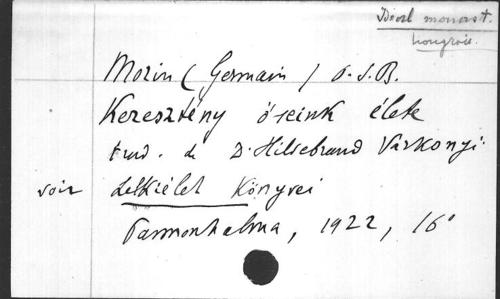 Ideal monast.
hongrois.
Morin ( Germain ) O.S.B.
Keresztény őseink élete
trad. de D. Hildebrand Várkonyi.
voir Lelkiélet Könyvei
Pannonhalma, 1922, 16°